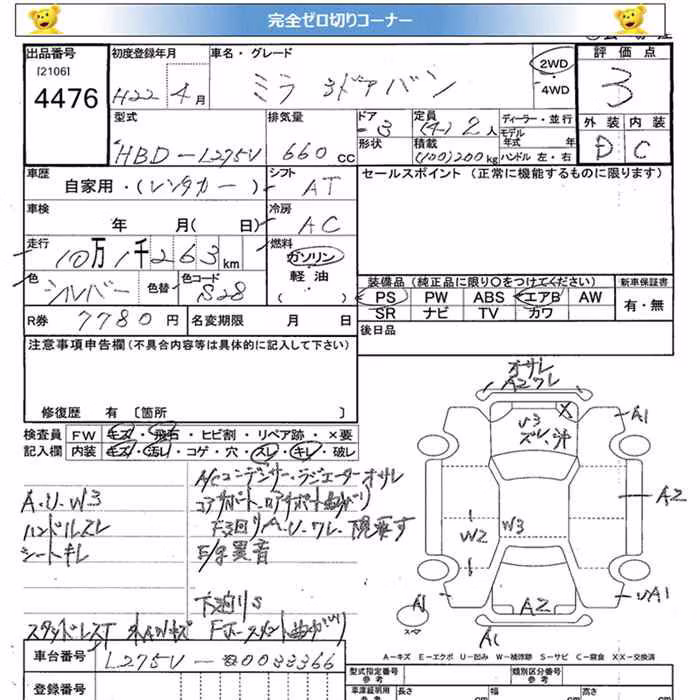 完全ゼロ切りコーナー
出品番号 初度登録年月 車名・グレード 2WD 評価点
[2106] H22 4月 ミラ 3ドアバン ・4WD 3
4476
型式 排気量 ドア 定員 ディーラー・並行 外装 内装
HBD-L275V 660cc 3 (4) 2人 モデル年式 年 D C
形状 積載 (100)200kg ハンドル 左・右
車歴 シフト セールスポイント (正常に機能するものに限ります)
自家用・(レンタカー) AT
車検 冷房
年 月( 日) AC
走行 燃料
10万1千263km ガソリン
色 色替 色コード 軽油 装備品 (純正品に限り○をつけてください) 新車保証書
シルバー S28 ( ) PS PW ABS エアB AW 有・無
R券 7780円 名変期限 月 日 SR ナビ TV カワ
注意事項申告欄 (不具合内容等は具体的に記入して下さい) 後日品
修復歴 有 〔箇所 〕
オサレ
A2ワレ
検査員 FW キズ・飛石・ヒビ割・リペア跡・×要
記入欄 内装 キズ・汚レ・コゲ・穴・スレ・キレ・破レ
A/Cコンデンサー・ラジエーターオサレ
A.U.W3 コアサポート・ロアサポート曲がり
ハンドルスレ 下廻りA.U.ワレ
シートキレ 異音
下廻りS
スタッドレスT
A1
X
U3
A2
W2
W3
A1
UA1
A2
A1
スペア
A-キズ E-エクボ U-凹み W-補修跡 S-サビ C-腐食 XX-交換済
車台番号 L275V-0033366 型式指定番号 参考 類別区分番号 参考
登録番号 車庫証明用 参考 長さ cm 幅 cm 高さ cm